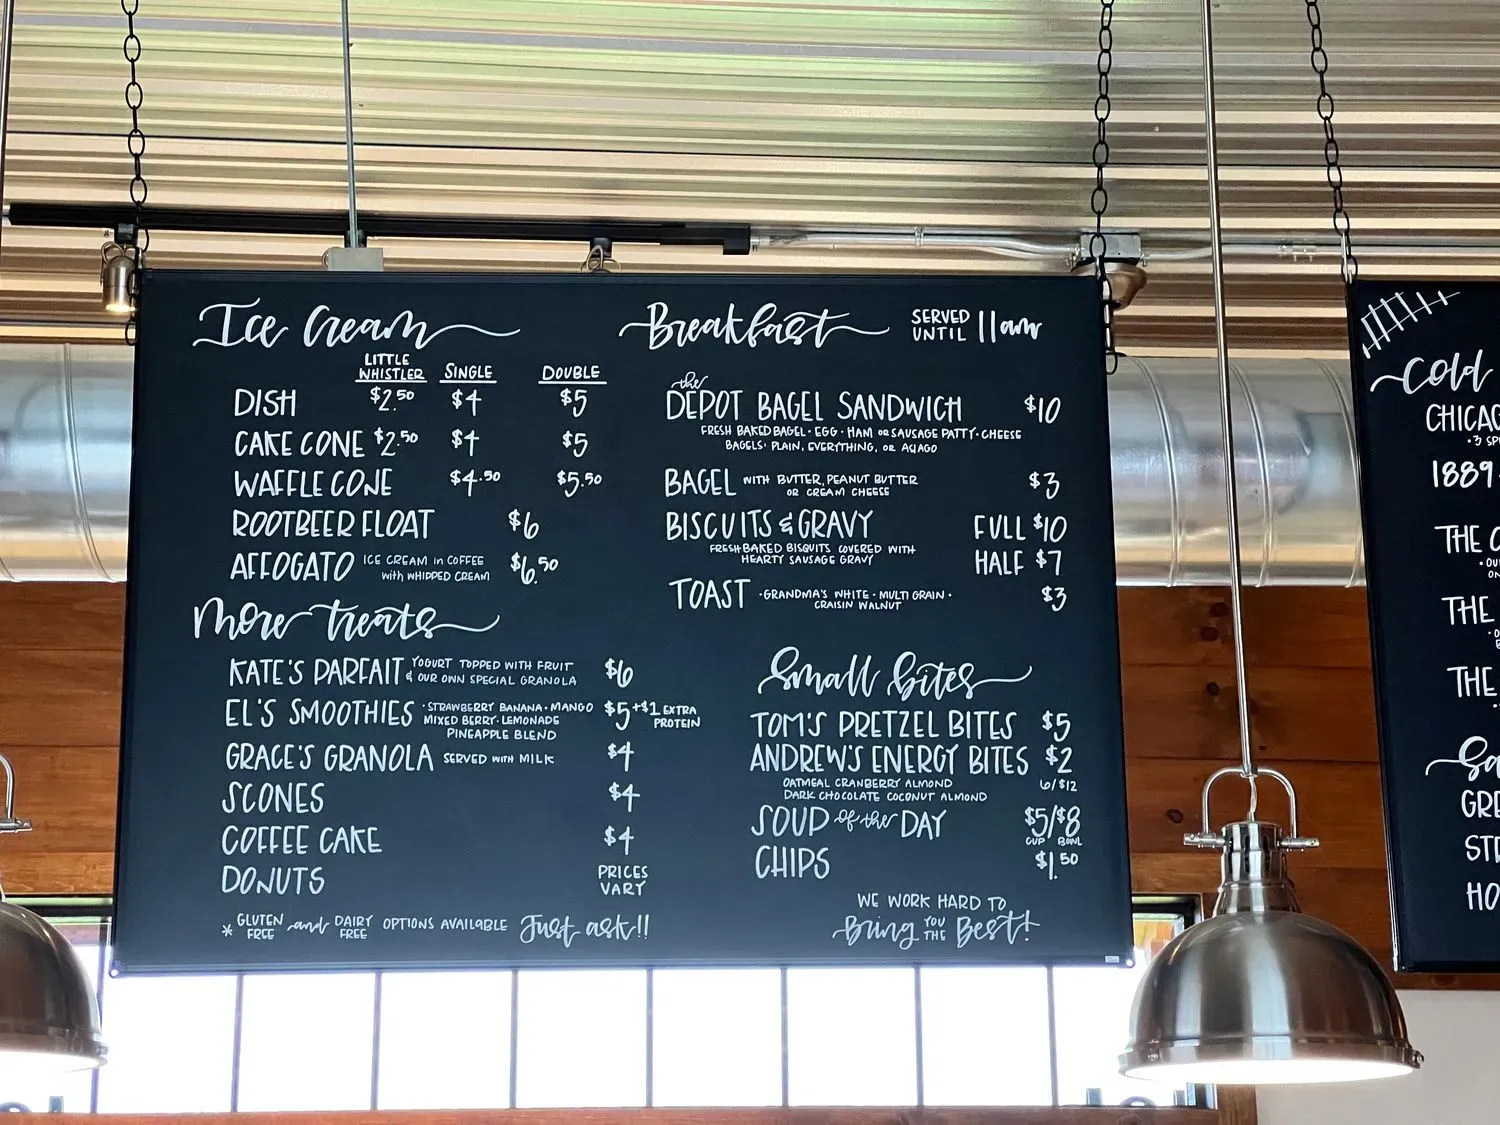 Ice Cream
LITTLE WHISTLER SINGLE DOUBLE
DISH $2.50 $4 $5
CAKE CONE $2.50 $4 $5
WAFFLE CONE $4.50 $5.50
ROOTBEER FLOAT $6
AFFOGATO ICE CREAM in COFFEE with WHIPPED CREAM $6.50
More treats
KATE'S PARFAIT YOGURT TOPPED WITH FRUIT & OUR OWN SPECIAL GRANOLA $6
EL'S SMOOTHIES · STRAWBERRY BANANA · MANGO $5 +$1 EXTRA PROTEIN
MIXED BERRY · LEMONADE
PINEAPPLE BLEND
GRACE'S GRANOLA SERVED with MILK $4
SCONES $4
COFFEE CAKE $4
DONUTS PRICES VARY
* GLUTEN FREE and DAIRY FREE OPTIONS AVAILABLE Just ask!!
Breakfast SERVED UNTIL 11am
the
DEPOT BAGEL SANDWICH $10
FRESH BAKED BAGEL · EGG · HAM OR SAUSAGE PATTY · CHEESE
BAGELS: PLAIN, EVERYTHING, OR ASIAGO
BAGEL WITH BUTTER, PEANUT BUTTER OR CREAM CHEESE $3
BISCUITS & GRAVY FULL $10
FRESH BAKED BISQUITS COVERED WITH
HEARTY SAUSAGE GRAVY HALF $7
TOAST · GRANDMA'S WHITE · MULTI GRAIN · CRAISIN WALNUT $3
Small bites
TOM'S PRETZEL BITES $5
ANDREW'S ENERGY BITES $2
OATMEAL CRANBERRY ALMOND 6/$12
DARK CHOCOLATE COCONUT ALMOND
SOUP of the DAY $5/$8
CUP BOWL
CHIPS $1.50
WE WORK HARD TO
Bring YOU THE Best!
Cold
1889
THE
THE
THE